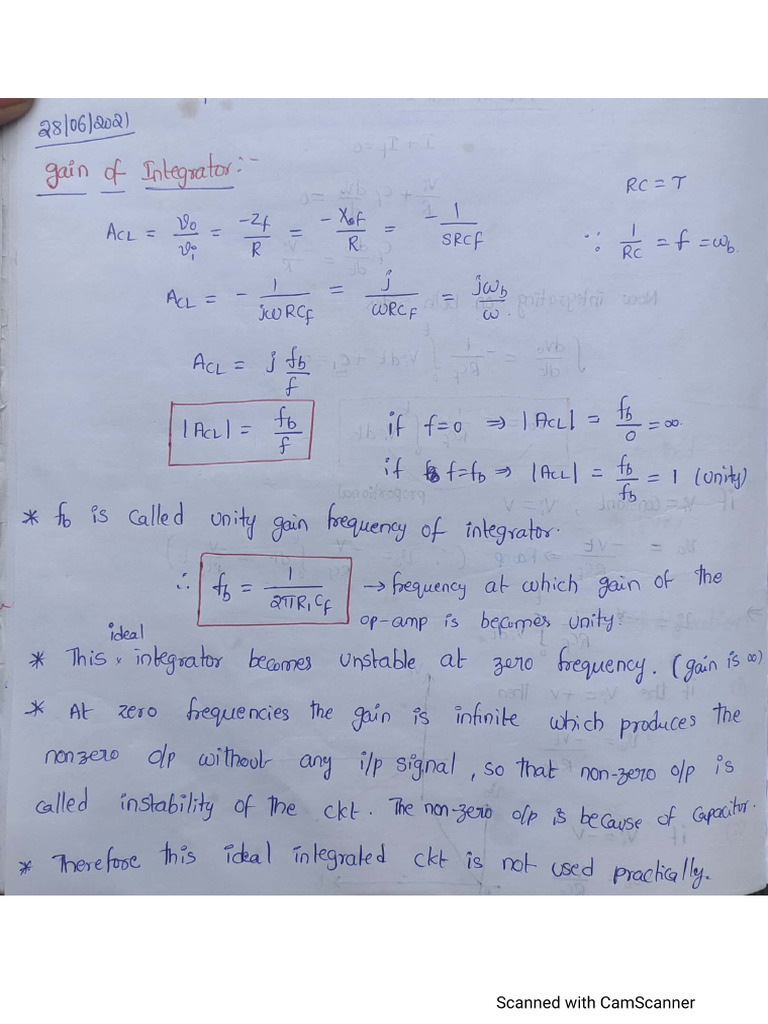 28/06/2021
gain of Integrator:-
RC = T
ACL = vo/vi = -Zf/R = -Xcf/R = - 1/SRCf
∵ 1/RC = f = ωb.
ACL = - 1/jωRCf = j/ωRCf = jωb/ω.
ACL = j fb/f
|ACL| = fb/f if f=0 ⇒ |ACL| = fb/0 = ∞.
if f=fb ⇒ |ACL| = fb/fb = 1 (unity)
* fb is called unity gain frequency of integrator.
∴ fb = 1/2πR1Cf → frequency at which gain of the
op-amp is becomes unity.
ideal
* This × integrator becomes unstable at zero frequency. (gain is ∞)
* At zero frequencies the gain is infinite which produces the
nonzero o/p without any i/p signal, so that non-zero o/p is
called instability of the ckt. The non-zero o/p is because of capacitor.
* Therefore this ideal integrated ckt is not used practically.
Scanned with CamScanner